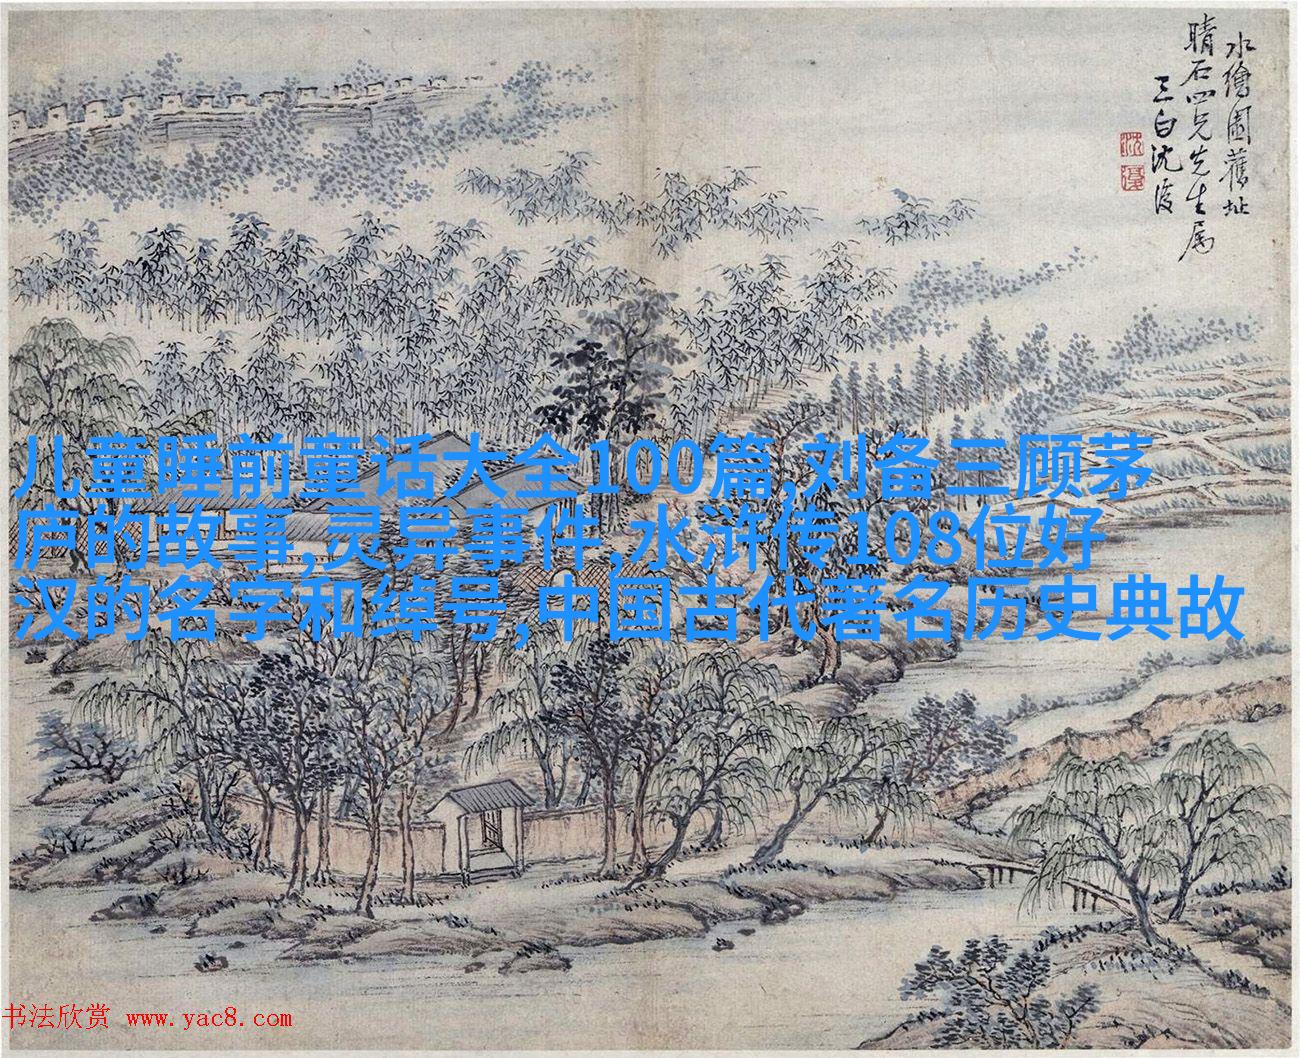 水繪園舊址
晴石四兄先生属
三白沈复
沈
復
儿童睡前童话大全100篇,刘备三顾茅
庐的故事,灵异事件,水浒传108位好
汉的名字和绰号,中国古代著名历史典故
书法欣赏 www.yac8.com